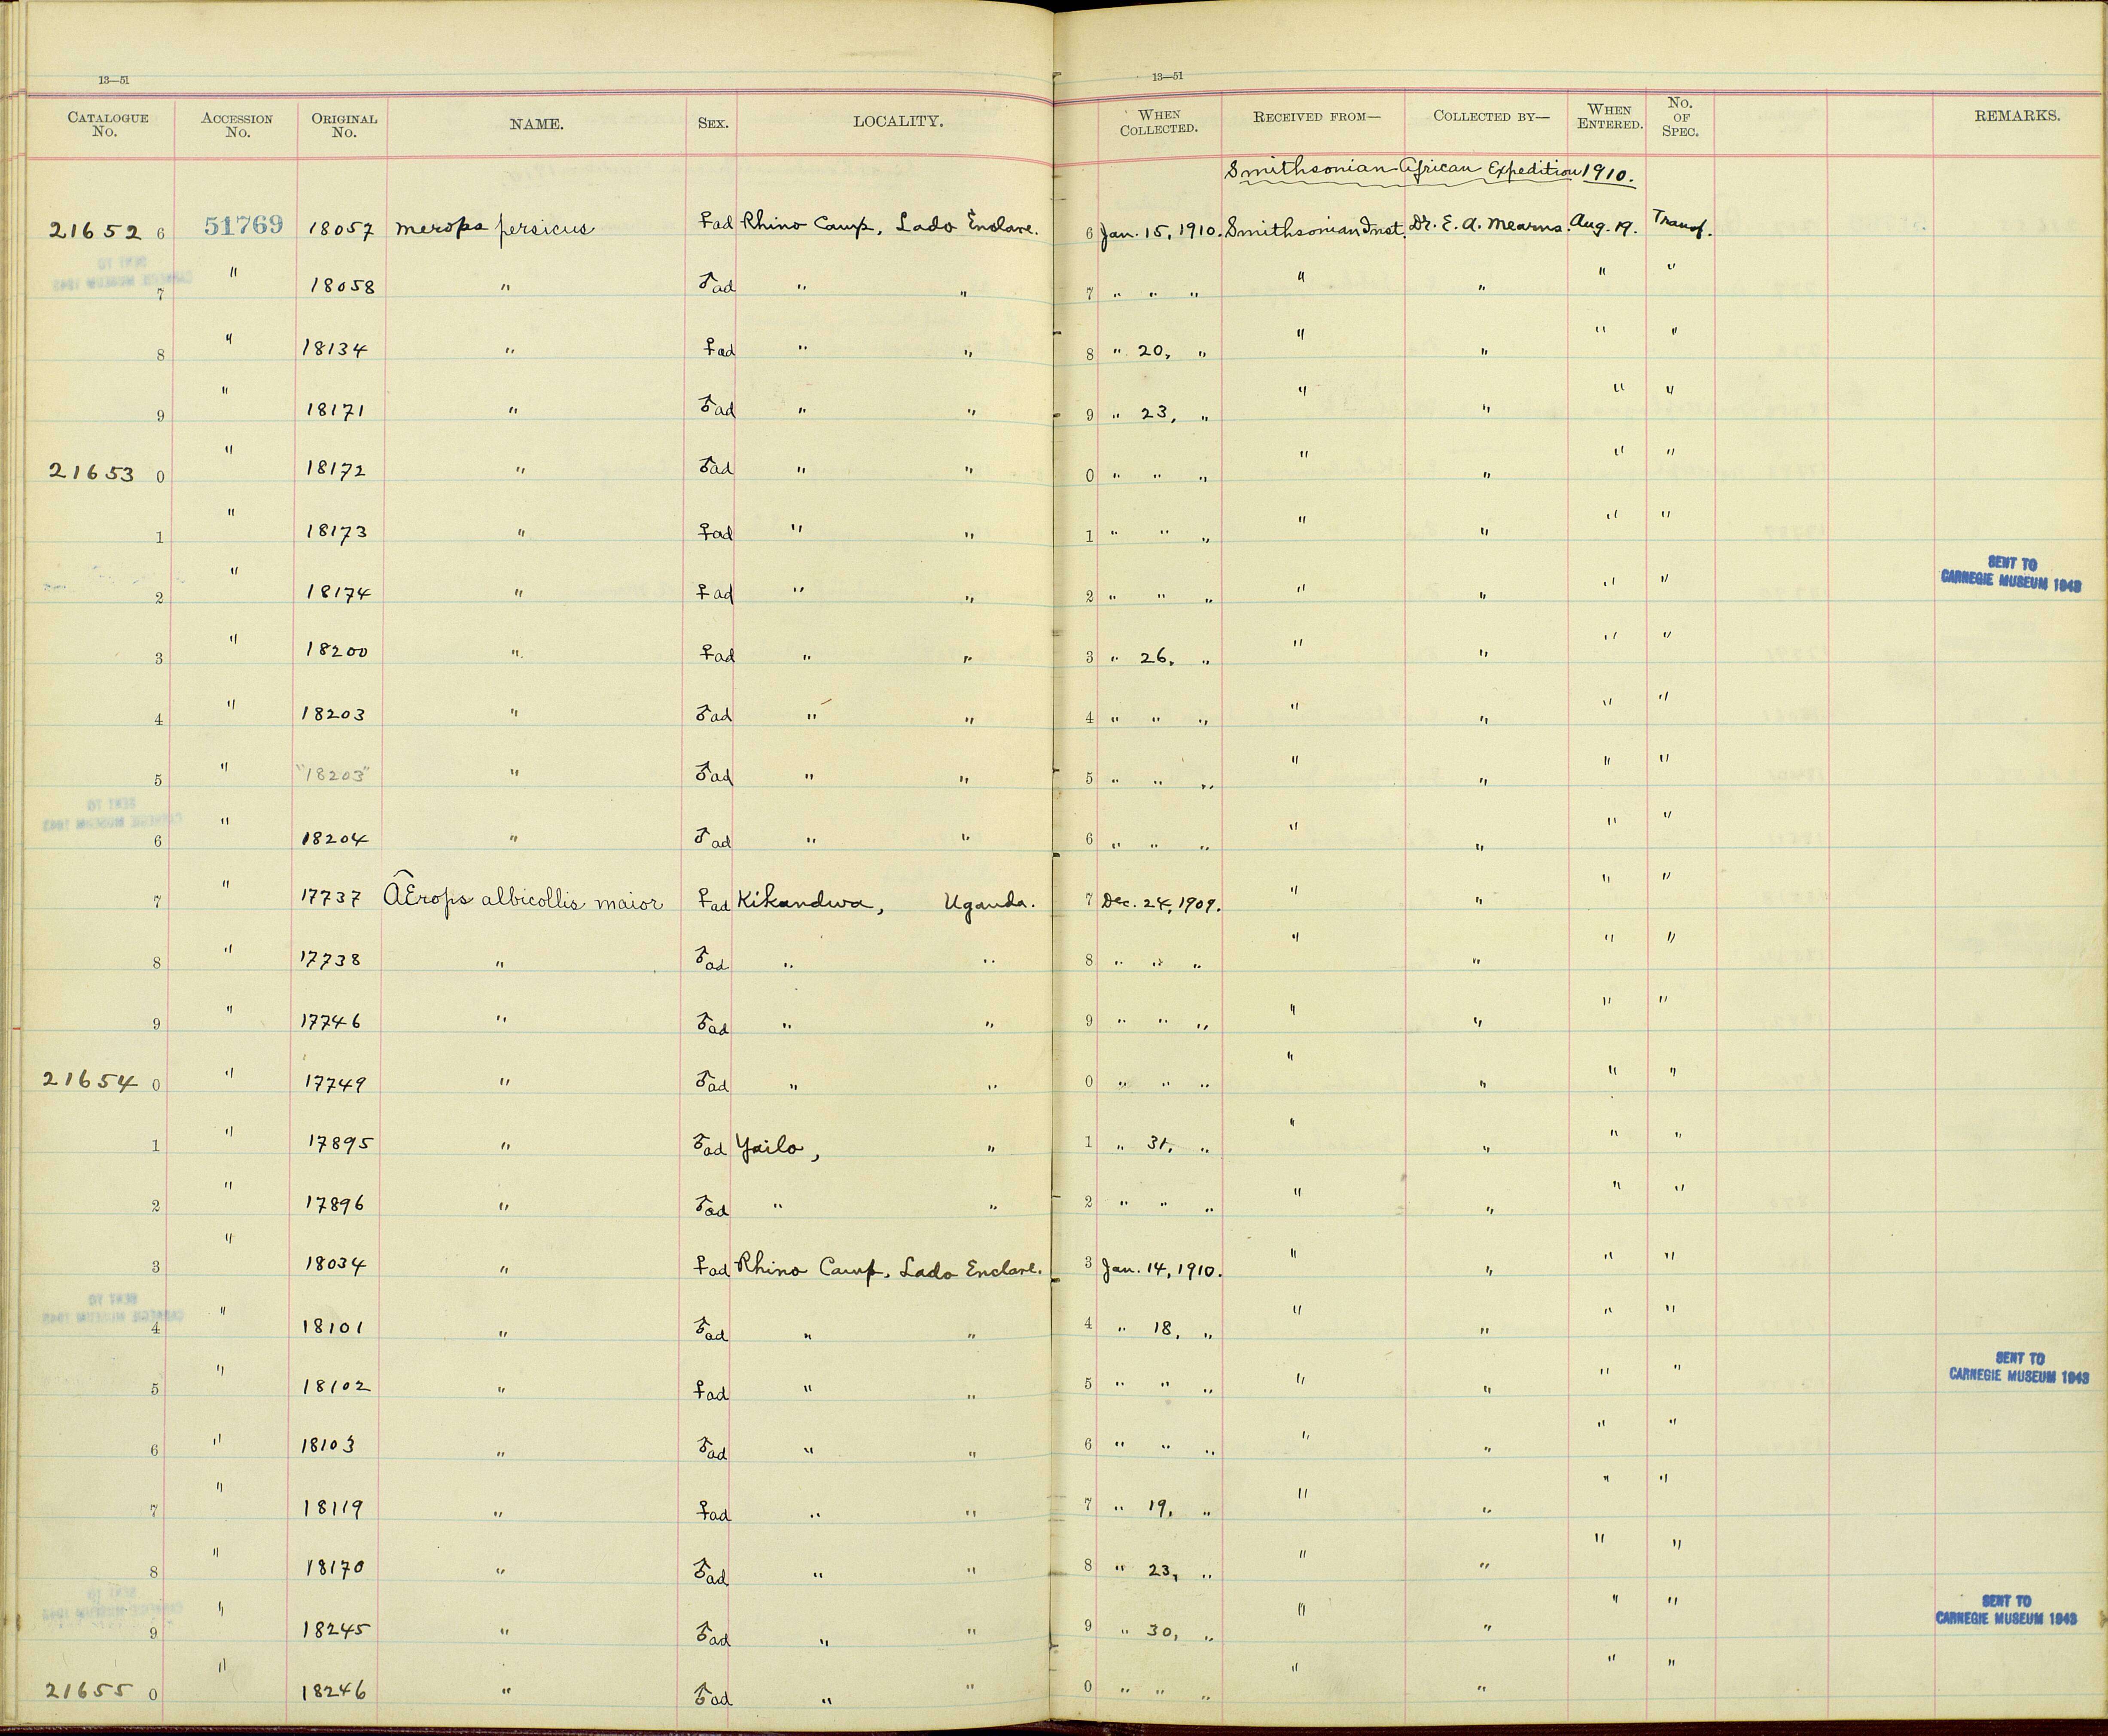 13—51 13—51
CATALOGUE No. ACCESSION No. ORIGINAL No. NAME. SEX. LOCALITY. WHEN COLLECTED. RECEIVED FROM— COLLECTED BY— WHEN ENTERED. No. OF SPEC. REMARKS.
Smithsonian African Expedition 1910.
21652 6 51769 18057 Merops persicus ♀ad Rhino Camp, Lado Enclave. 6 Jan. 15, 1910. Smithsonian Inst. Dr. E. A. Mearns. Aug. 19. Transf.
7 " 18058 " ♂ad " " 7 " " " " " " "
8 " 18134 " ♀ad " " 8 " 20, " " " " "
9 " 18171 " ♂ad " " 9 " 23, " " " " "
21653 0 " 18172 " ♂ad " " 0 " " " " " " "
1 " 18173 " ♀ad " " 1 " " " " " " "
2 " 18174 " ♀ad " " 2 " " " " " " " SENT TO CARNEGIE MUSEUM 1943
3 " 18200 " ♀ad " " 3 " 26, " " " " "
4 " 18203 " ♂ad " " 4 " " " " " " "
5 " "18203" " ♂ad " " 5 " " " " " " "
6 " 18204 " ♂ad " " 6 " " " " " " "
7 " 17737 AErops albicollis maior ♀ad Kikandwa, Uganda. 7 Dec. 24, 1909. " " " "
8 " 17738 " ♂ad " " 8 " " " " " " "
9 " 17746 " ♂ad " " 9 " " " " " " "
21654 0 " 17749 " ♂ad " " 0 " " " " " " "
1 " 17895 " ♂ad Yailo, " 1 " 31, " " " " "
2 " 17896 " ♂ad " " 2 " " " " " " "
3 " 18034 " ♀ad Rhino Camp, Lado Enclave. 3 Jan. 14, 1910. " " " "
4 " 18101 " ♂ad " " 4 " 18, " " " " "
5 " 18102 " ♀ad " " 5 " " " " " " " SENT TO CARNEGIE MUSEUM 1943
6 " 18103 " ♂ad " " 6 " " " " " " "
7 " 18119 " ♀ad " " 7 " 19, " " " " "
8 " 18170 " ♂ad " " 8 " 23, " " " " "
9 " 18245 " ♂ad " " 9 " 30, " " " " " SENT TO CARNEGIE MUSEUM 1943
21655 0 " 18246 " ♂ad " " 0 " " " " " " "